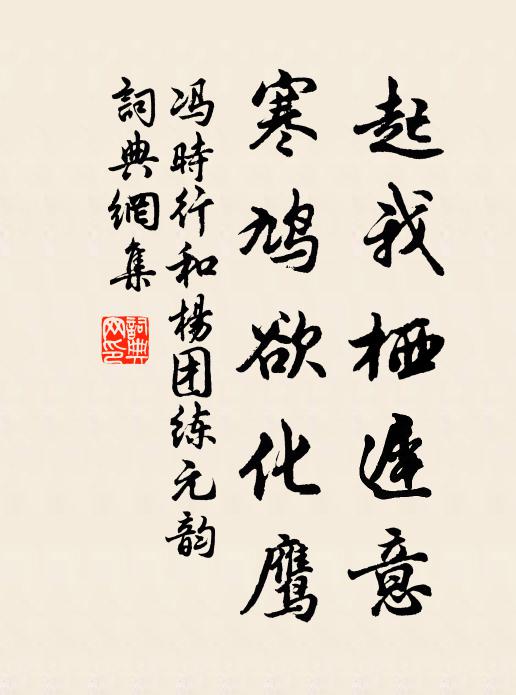 起我栖遅意
寒鸠欲化鹰
冯時行和楊团练元韵
詞典網集
詞典
网印